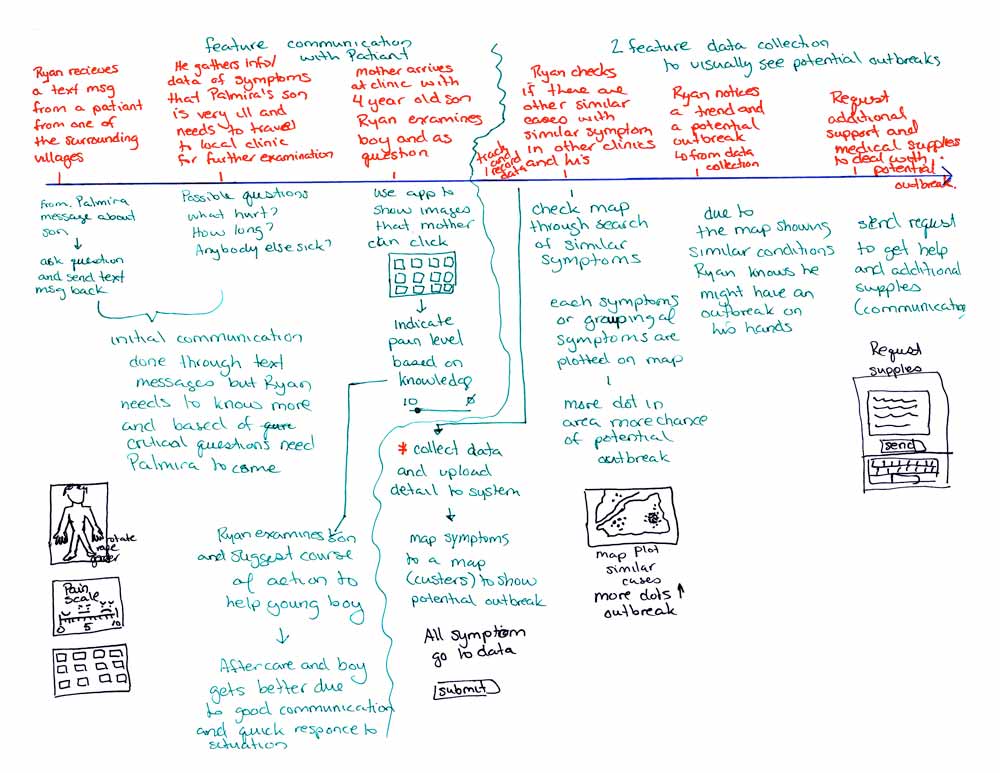 feature communication
with Patiant
2 feature data collection
to visually see potential outbreaks
Ryan recieves
a text msg
from a patiant
from one of
the surrounding
villages
He gathers info/
data of symptoms
that Palmira's son
is very ill and
needs to travel
to local clinic
for further examination
Mother arrives
at clinic with
4 year old son
Ryan examines
boy and as
question
track
and
record
data
Ryan checks
if there are
other similar
cases with
similar symptom
in other clinics
and his
Ryan notices
a trend and
a potential
outbreak
to from data
collection
Request
additional
support and
medical supplies
to deal with
potential
outbreak.
from Palmira
message about
son
ask question
and send text
msg back
Possible questions
what hurt?
How long?
Anybody else sick?
initial communication
done through text
messages but Ryan
needs to know more
and based of
critical questions need
Palmira to come
use app to
show images
that mother
can click
Indicate
pain level
based on
knowledge
10 0
* collect data
and upload
detail to system
map symptoms
to a map
(custers) to show
potential outbreak
All symptom
go to data
submit
Ryan examines son
and suggest course
of action to
help young boy
After care and boy
gets better due
to good communication
and quick responce to
situation
check map
through search
of similar
symptoms
each symptoms
or grouping of
symptoms are
plotted on map
more dot in
area more chance
of potential
outbreak
map plot
similar
cases
more dots
outbreak
due to
the map showing
similar conditions
Ryan knows he
might have an
outbreak on
his hands
send requst
to get help
and additional
supplies
(communicatio
Request
supples
send
rotate
Pain
scale
0 5 10